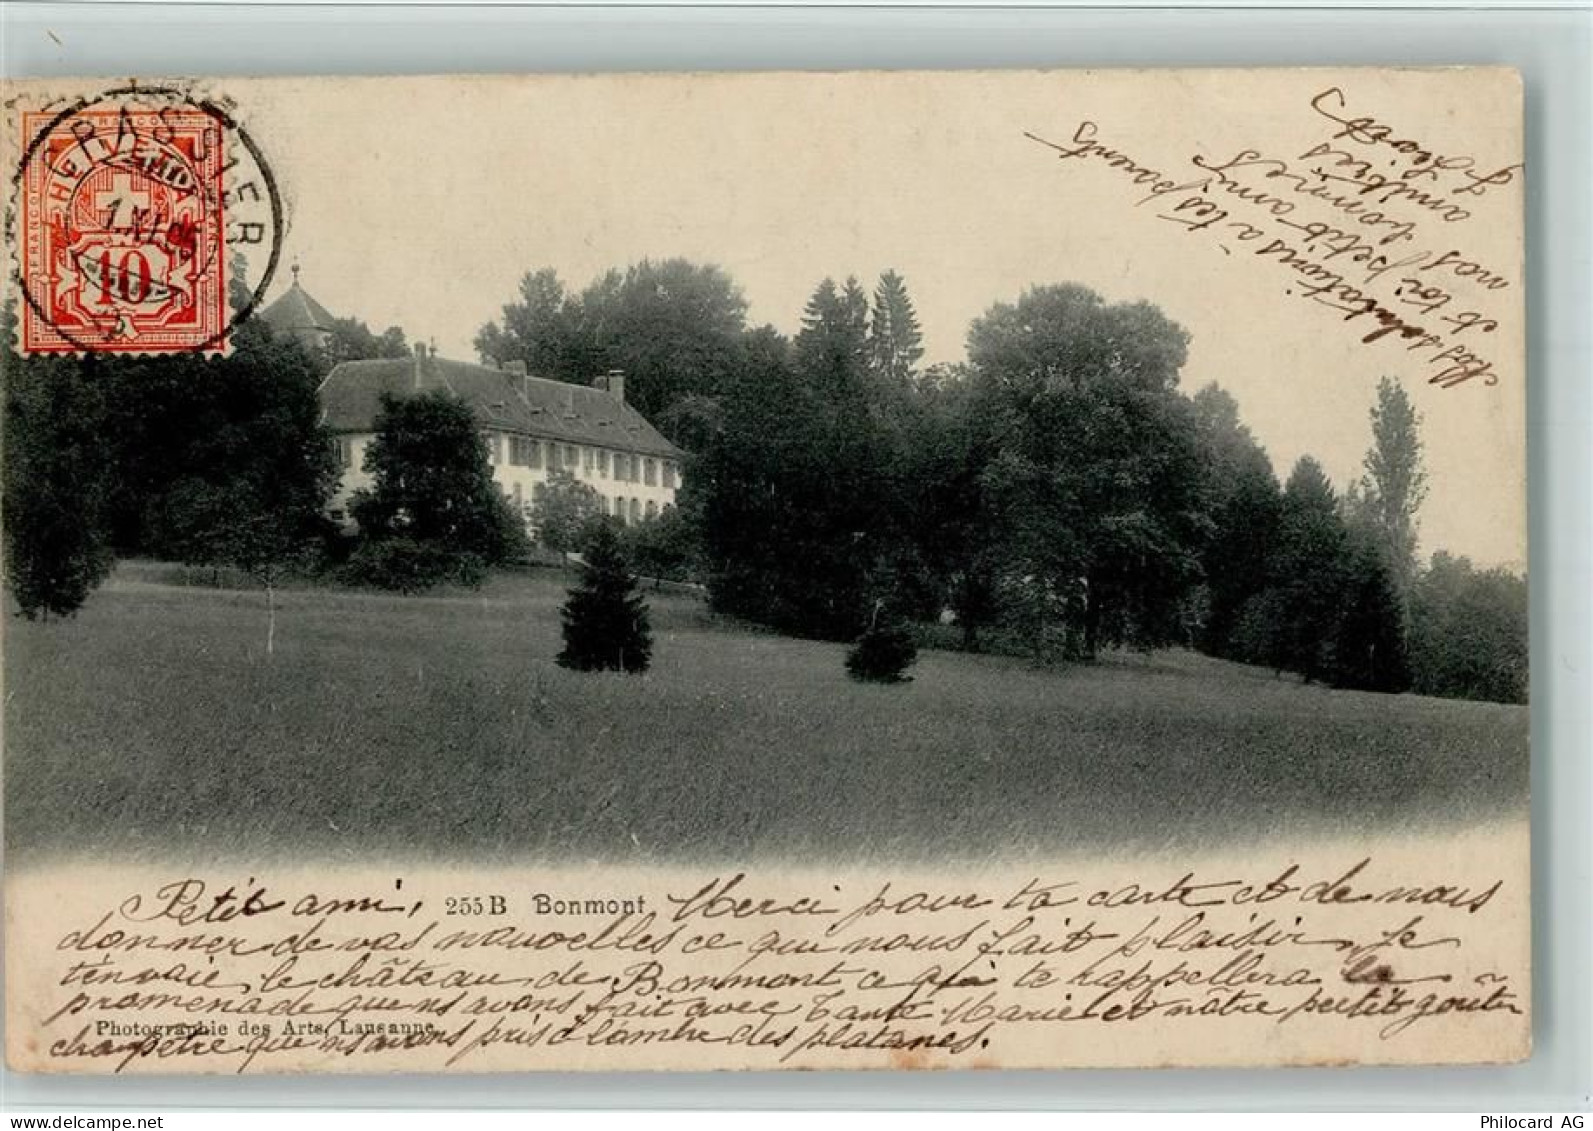 CRASSIER
1.XI.05
FRANCO
HELVETIA
10
Mes salutations à tes parents
et toi petit ami
nos bonnes
amitiés
Petit ami, 255 B Bonmont Merci pour ta carte et de nous
donner de vos nouvelles ce qui nous fait plaisir, Je
t'envoie, le château de Bonmont ce qui te rappellera la
promenade que ns avons fait avec Tante Marie et nôtre petit goûter
Photographie des Arts, Lausanne
champêtre que ns avons pris à l'ombre des platanes.
Philocard AG